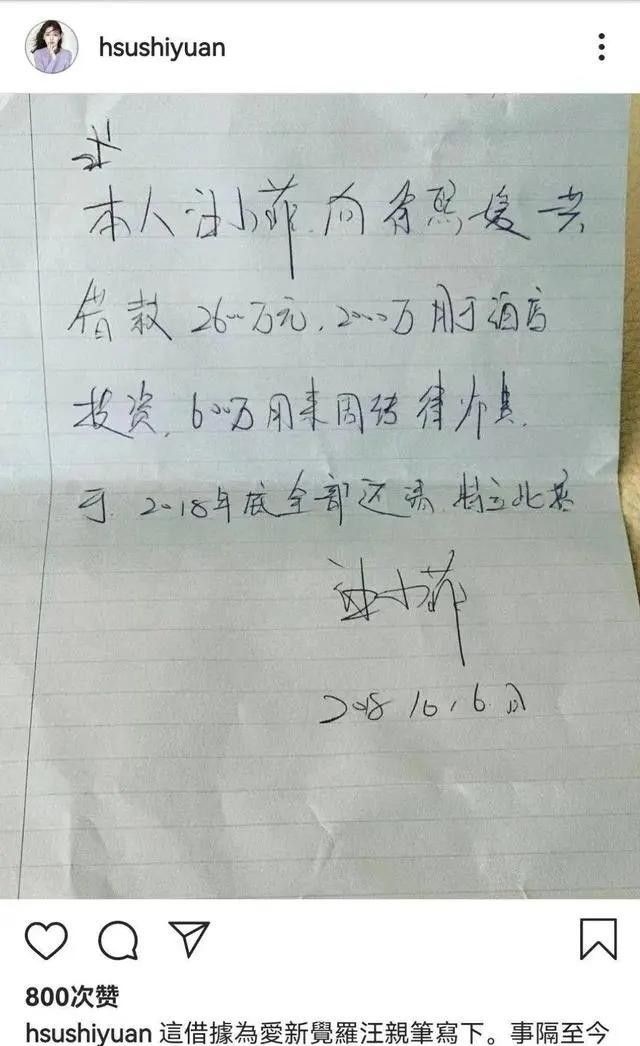 hsushiyuan
本人汪小菲,向徐熙媛共
借款2600万元,2000万用于酒店
投资,600万用来周转律师费,
于2018年底全部还清,特立此据
汪小菲
2018.10.6.日
800次赞
hsushiyuan 這借據為愛新覺羅汪親筆寫下。事隔至今